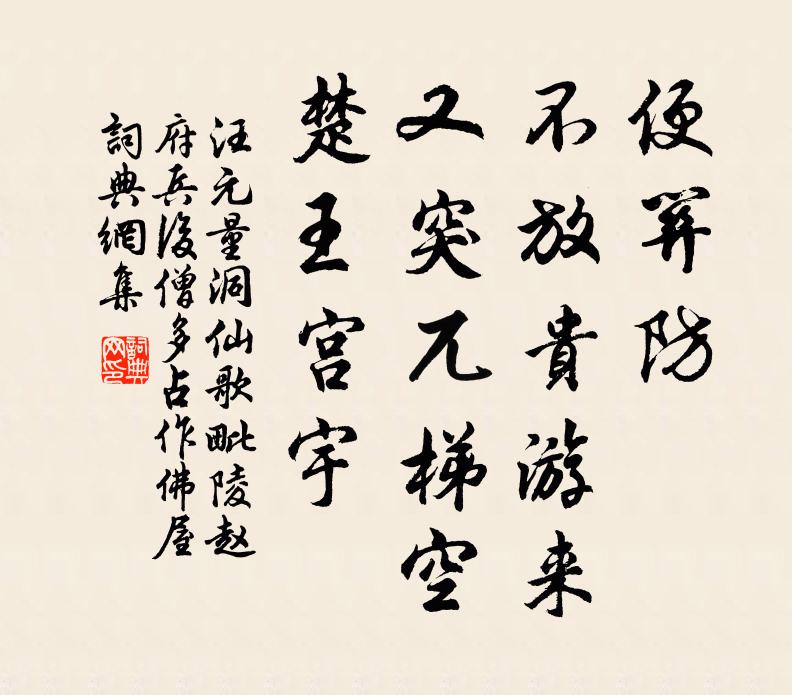 便防
不放貴游来
又突兀梯空
楚王宫宇
汪元量洞仙歌毗陵赵
府兵後僧多占作佛屋
詞典網集
詞典网印